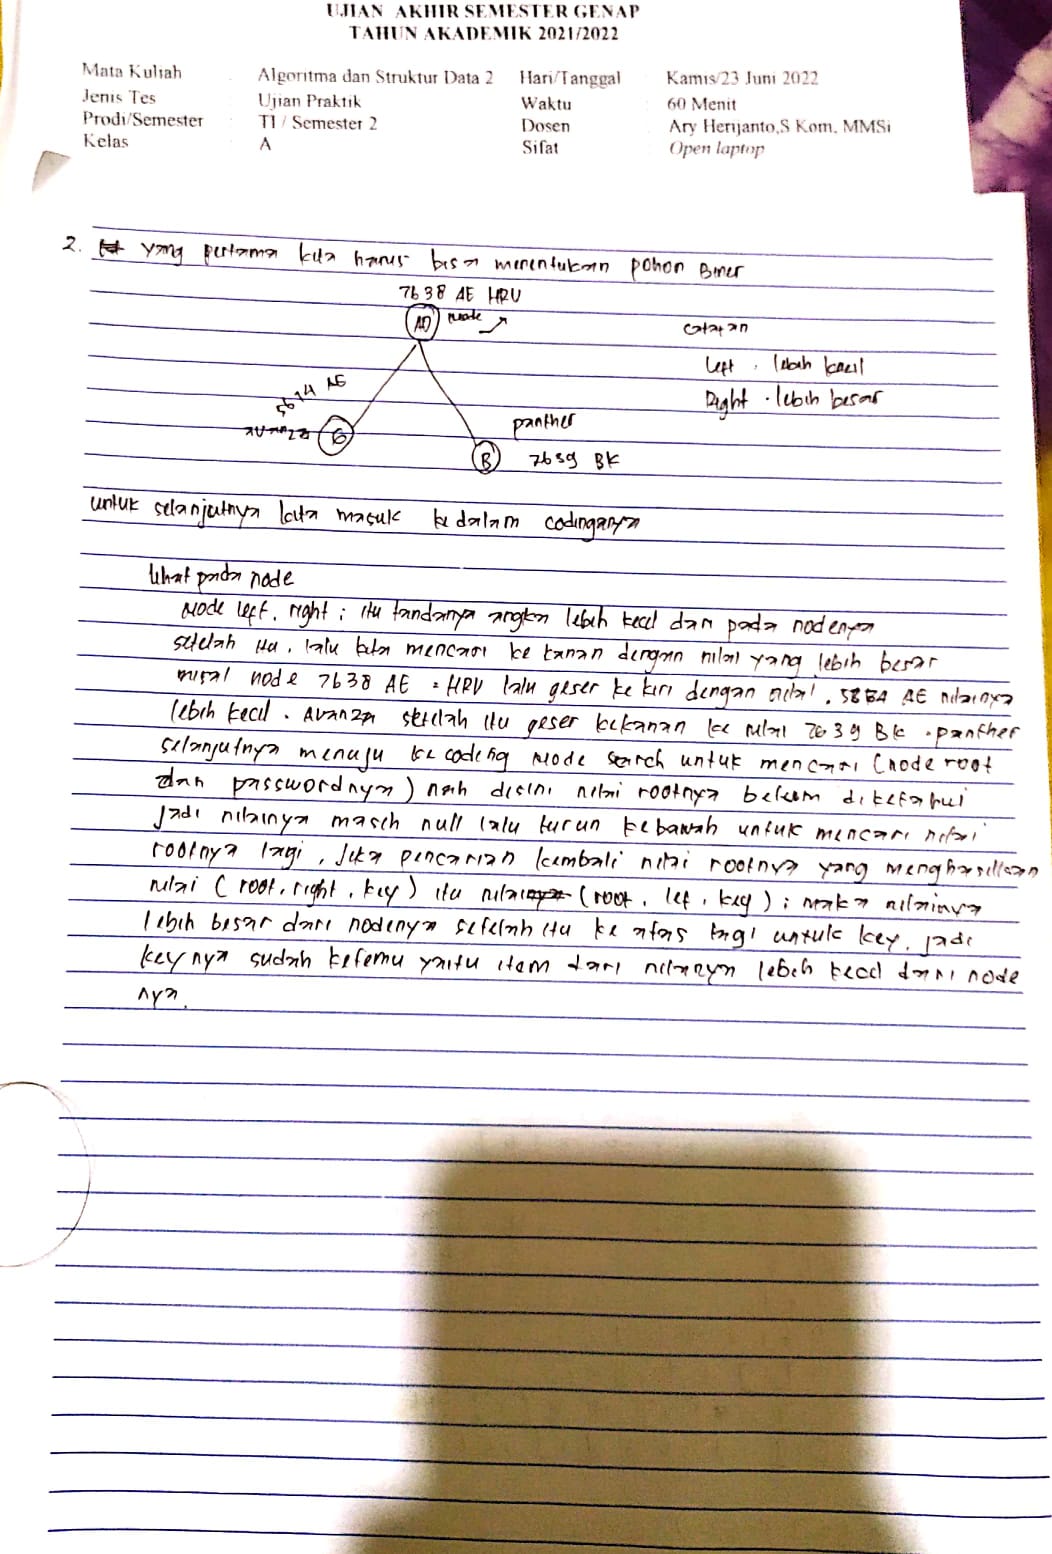 UJIAN AKHIR SEMESTER GENAP
TAHUN AKADEMIK 2021/2022
Mata Kuliah : Algoritma dan Struktur Data 2 Hari/Tanggal : Kamis/23 Juni 2022
Jenis Tes : Ujian Praktik Waktu : 60 Menit
Prodi/Semester : TI / Semester 2 Dosen : Ary Herijanto,S Kom, MMSi
Kelas : A Sifat : Open laptop
2. yang pertama kita harus bisa menentukan pohon Biner
7638 AE HRV
AD node
catatan
left , lebih kecil
Right . lebih besar
5614 AE
avanza G
panther
B 7639 BK
untuk selanjutnya kita masuk ke dalam codinganya
lihat pada node
Node left, right ; itu tandanya angka lebih kecil dari pada nodenya
setelah itu, lalu kita mencari ke kanan dengan nilai yang lebih besar
misal node 7638 AE = HRV lalu geser ke kiri dengan nilai , AE nilainya
lebih kecil . Avanza setelah itu geser kekanan ke nilai 7639 BK . panther
selanjutnya menuju ke coding Node search untuk mencari (node root
dan passwordnya) nah disini nilai rootnya belum diketahui
jadi nilainya masih null lalu turun kebawah untuk mencari nilai
rootnya lagi , jika pencarian kembali nilai rootnya yang menghasilkan
nilai (root, right , key) itu nilai (root , lef , key) ; maka nilainya
lebih besar dari nodenya setelah itu ke atas lagi untuk key, jadi
keynya sudah ketemu yaitu item dari nilanya lebih kecil dari node
nya.